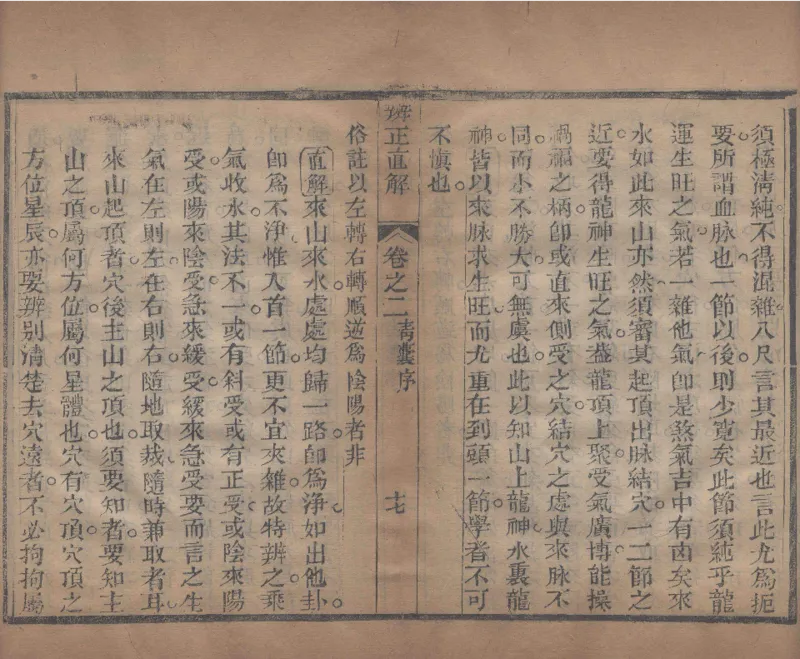 須極淸純不得混雜八尺言其最近也言此尤爲扼
要所謂血脉也一節以後則少寬矣此節須純乎龍
運生旺之氣若一雜他氣卽是煞氣吉中有凶矣來
水如此來山亦然須審其起頂出脉結穴一二節之
近要得龍神生旺之氣葢龍頂上聚受氣廣博能操
禍福之柄卽或直來側受之穴結穴之處與來脉不
同而小不勝大可無虞也此以知山上龍神水裏龍
神皆以來脉求生旺而尤重在到頭一節學者不可
不愼也
辨正直解 卷之二 靑囊序 十七
俗註以左轉右轉順逆爲陰陽者非
直解來山來水處處均歸一路卽爲淨如出他卦
卽爲不淨惟入首一節更不宜夾雜故特辨之乘
氣收水其法不一或有斜受或有正受或陰來陽
受或陽來陰受急來緩受緩來急受要而言之生
氣在左則左在右則右隨地取裁隨時兼取者耳
來山起頂者穴後主山之頂也須要知者要知主
山之頂屬何方位屬何星體也穴有穴頂穴頂之
方位星辰亦要辨別淸楚去穴遠者不必拘拘屬